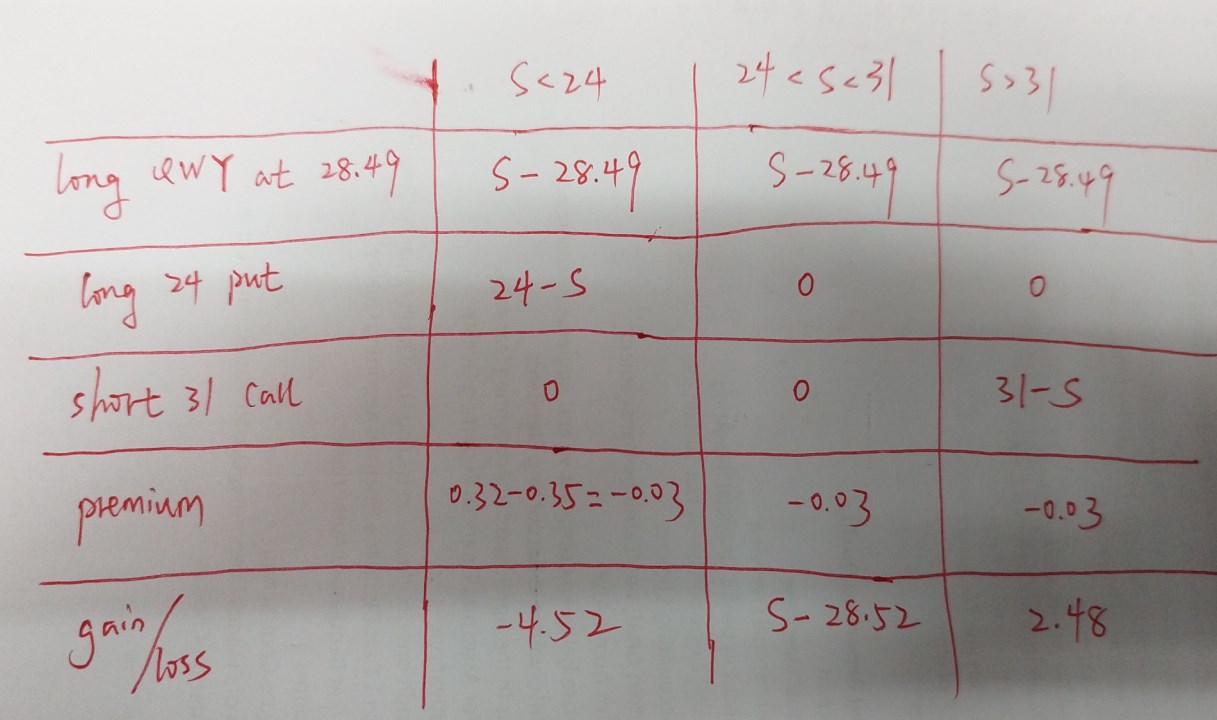 S<24 24<S<31 S>31
long QWY at 28.49 S-28.49 S-28.49 S-28.49
long 24 put 24-S 0 0
short 31 call 0 0 31-S
premium 0.32-0.35=-0.03 -0.03 -0.03
gain/loss -4.52 S-28.52 2.48